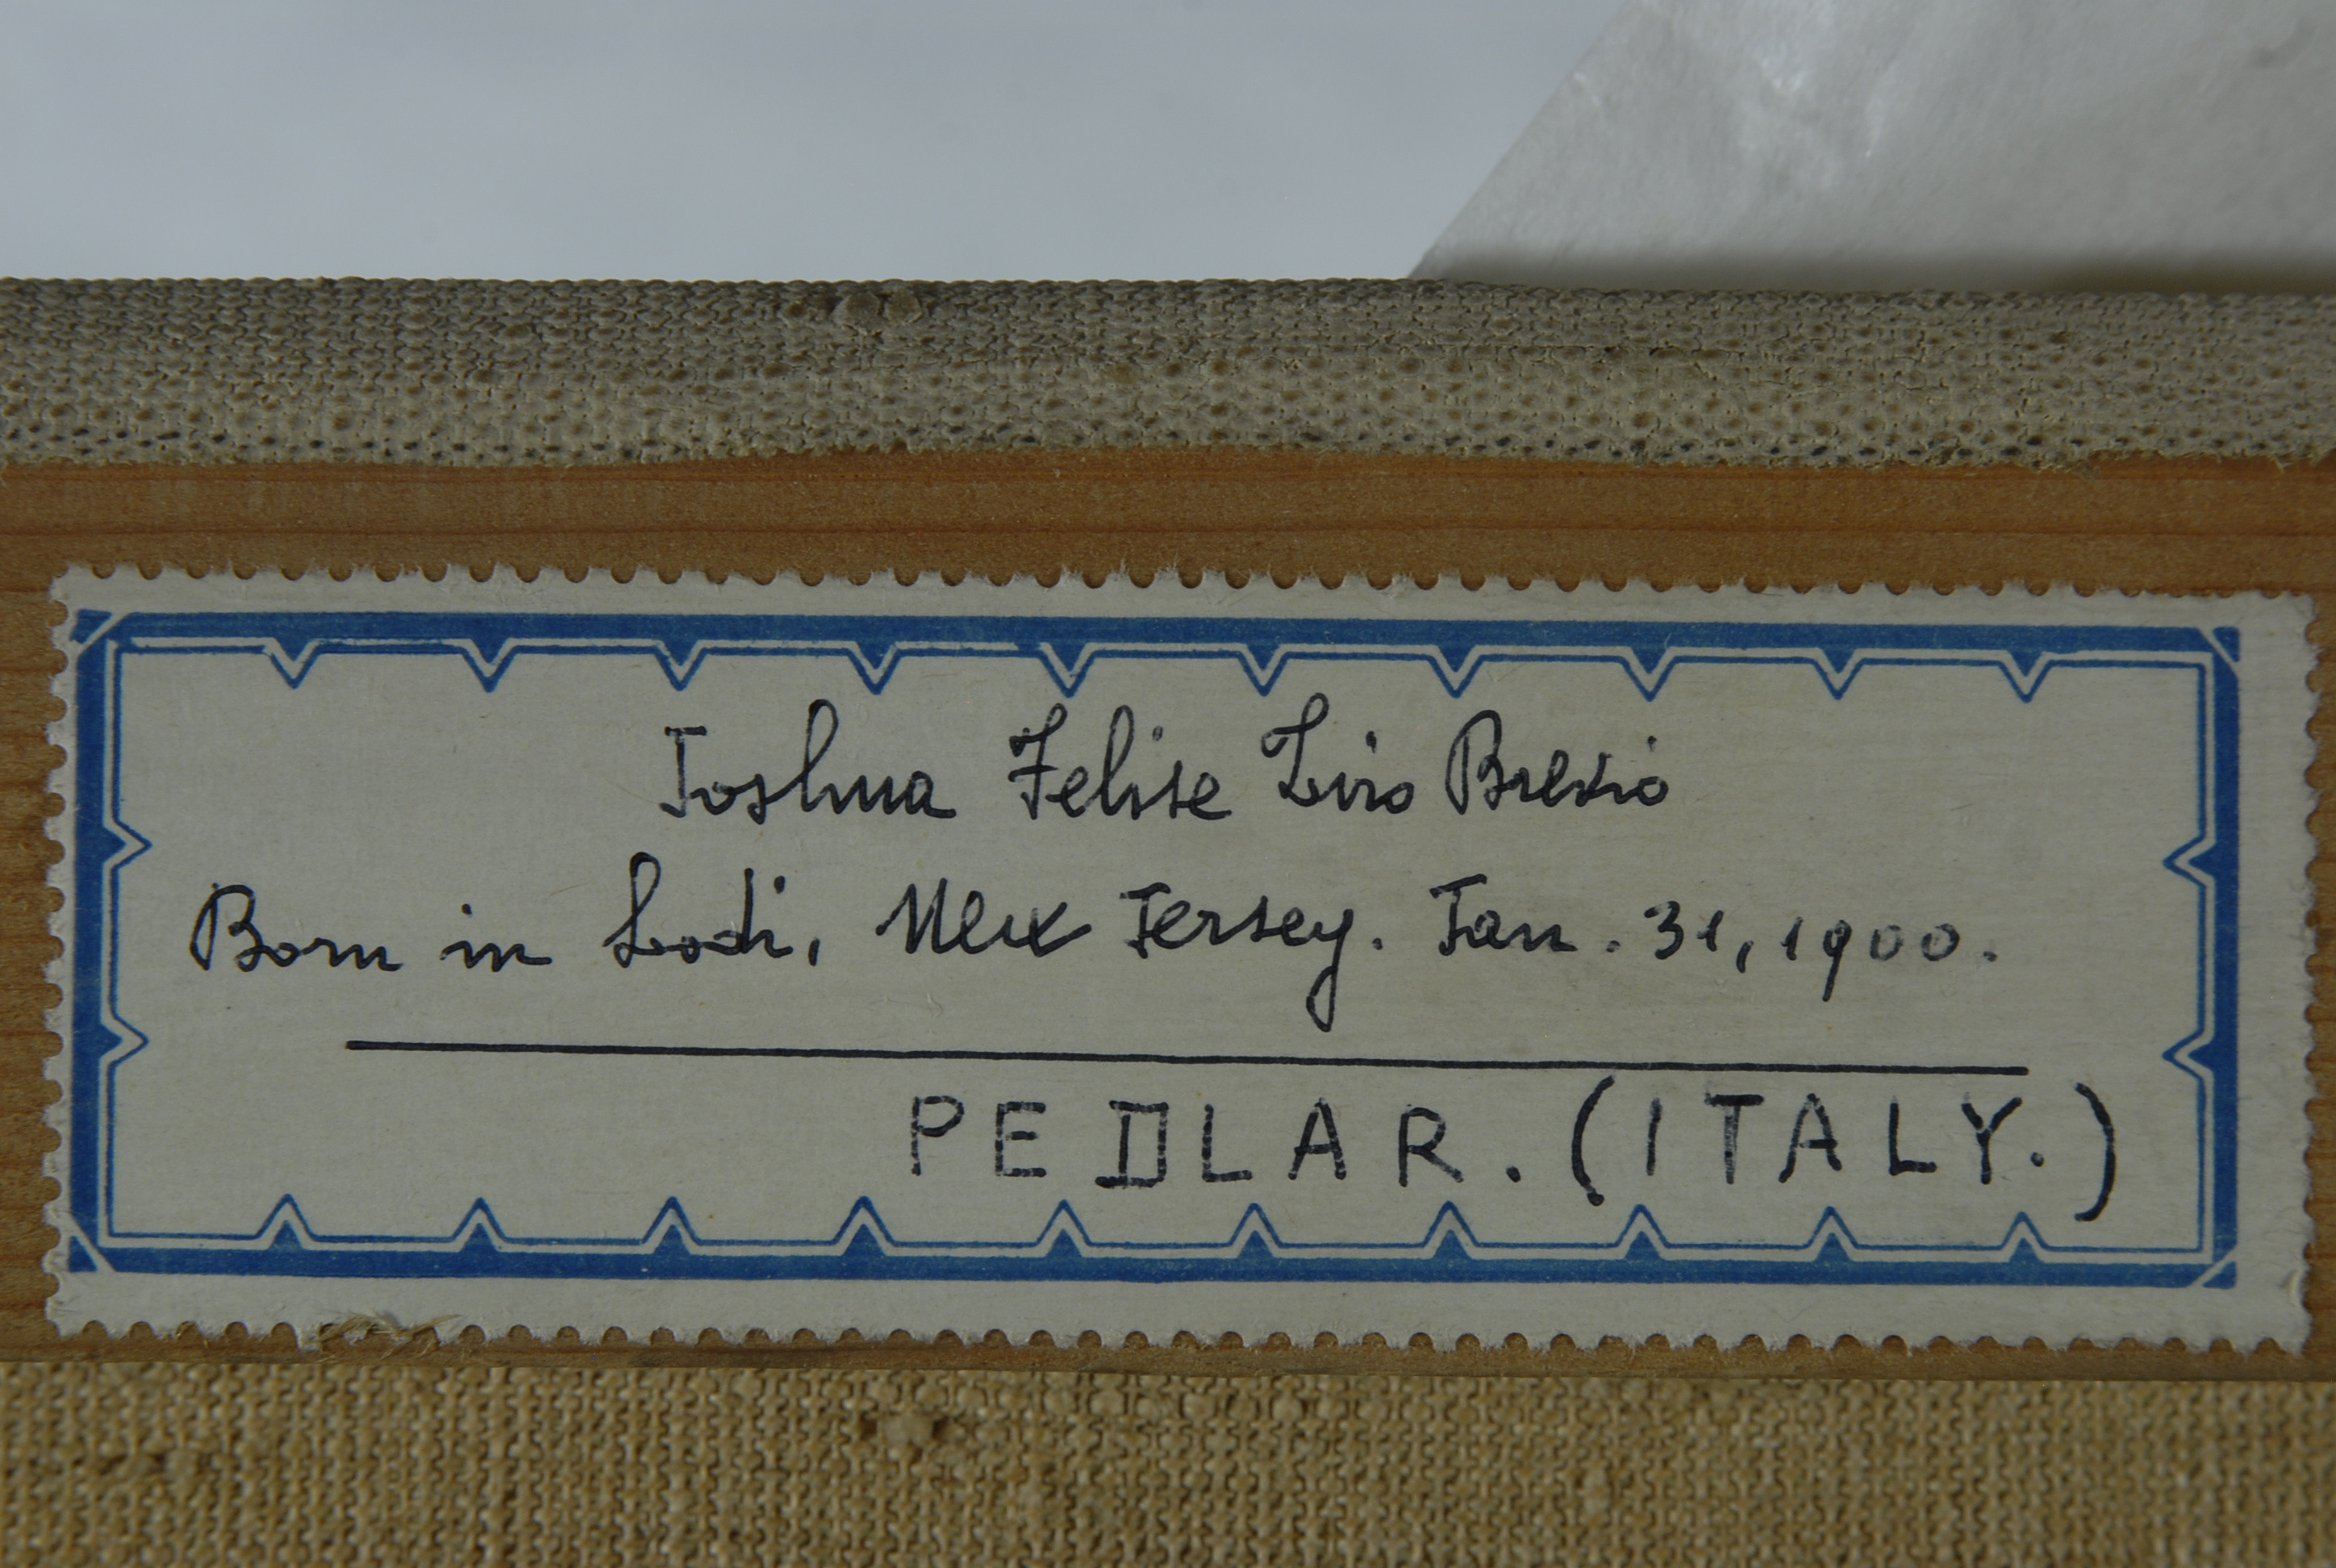 Joshua Felise Liro Bresio
Born in Lodi, New Jersey. Jan. 31, 1900.
PEDLAR. (ITALY.)